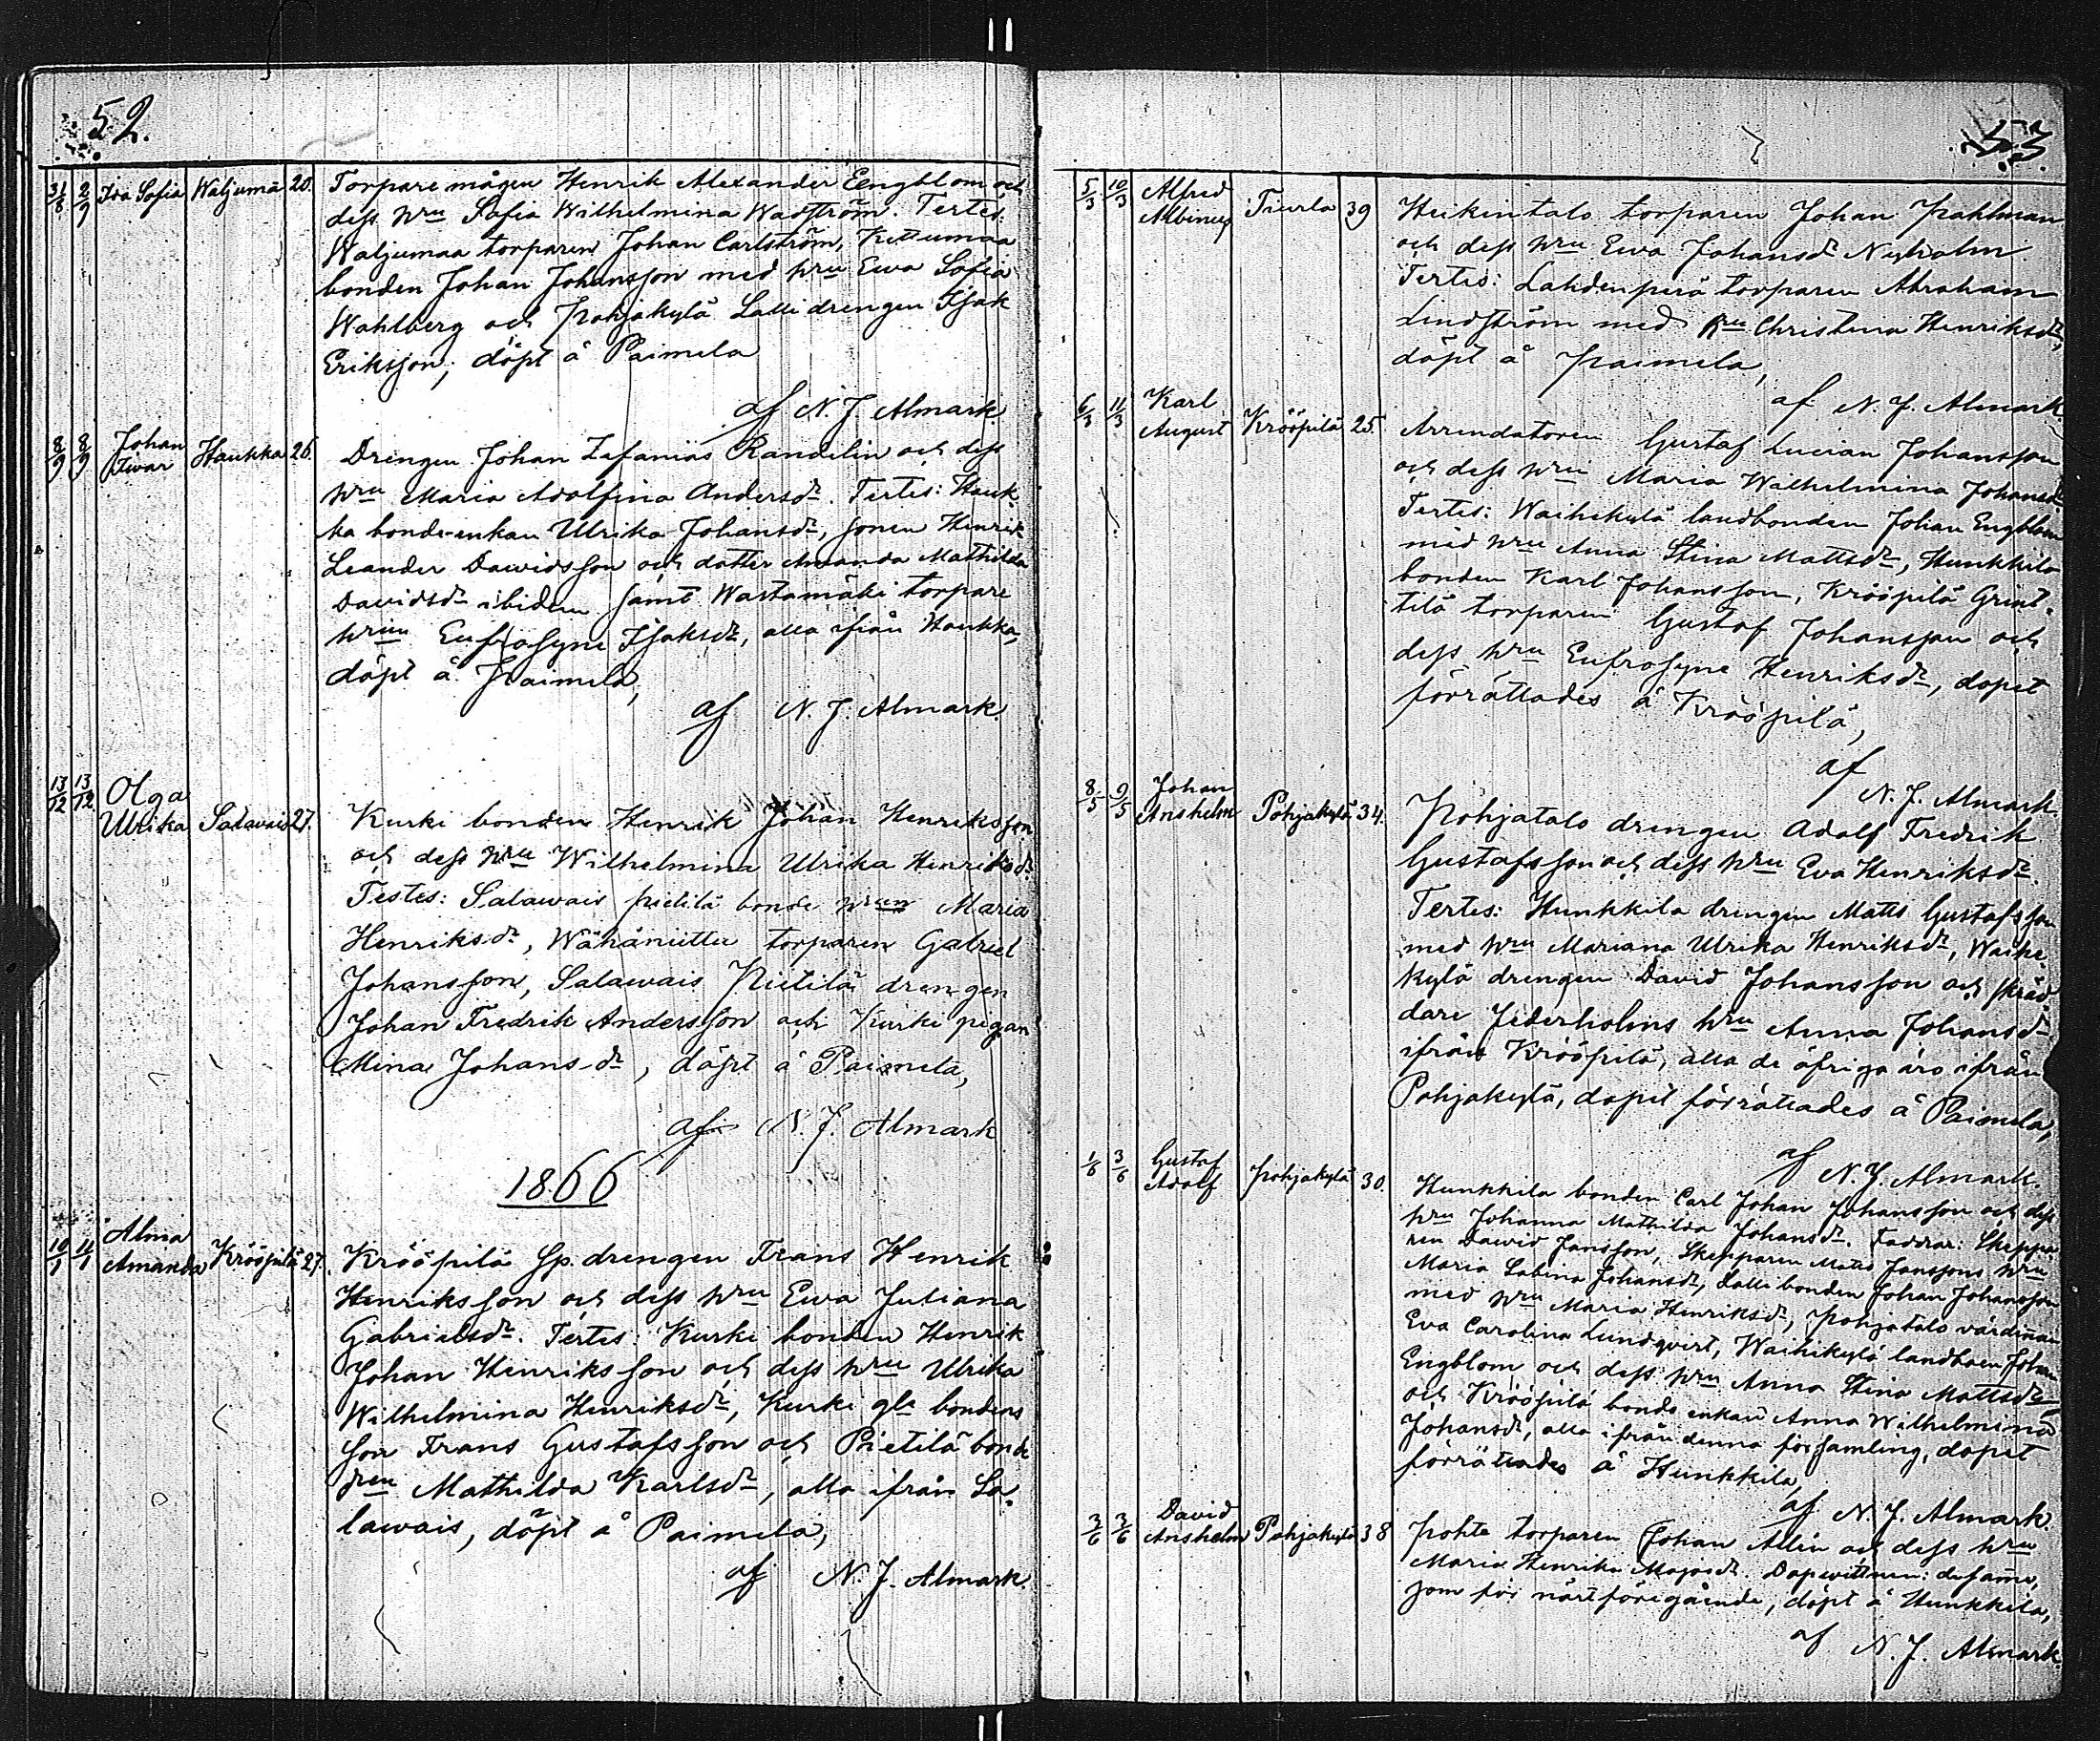 52.
31/8 2/9 Ida Sofia Waljumä 20. Torpare mågen Henrik Alexander Eengblom och
dess hru Sofia Wilhelmina Wadström. Testes:
Waljumaa torparen Johan Carlström, Kettumaa
bonden Johan Johansson med hru Ewa Sofia
Wahlberg och Pohjakylä Lalli drengen Isak
Eriksson; döpt å Paimela
af N. J. Almark.
8/9 8/9 Johan Iivar Haukka 26. Drengen Johan Zefanias Randelin och dess
hru Maria Adolfina Andersdr. Testes: Hauk-
ka bonde-enkan Ulrika Johansdr, sonen Henrik
Leander Dawidsson och dotter Amanda Mathilda
Davidsdr ibidem samt Wastamäki torpare
hrun Eufrosyne Isaksdr, alla ifrån Haukka,
döpt å Paimela,
af N. J. Almark.
13/12 13/12 Olga Ulrika Salavais 27. Kurki bonden Henrik Johan Henriksson
och dess hru Wilhelmina Ulrika Henriksdr.
Testes: Salawais pietilä bonde hrun Maria
Henriksdr, Wähäniittu torparen Gabriel
Johansson, Salawais Pietilä drengen
Johan Fredrik Andersson och Kurki pigan
Mina Johansdr, döpt å Paimela,
af N. J. Almark
1866
10/1 11/1 Alma Amanda Krööpilä 27. Krööpilä Sp. drengen Frans Henrik
Henriksson och dess hru Ewa Juliana
Gabrielsdr. Testes: Kurki bonden Henrik
Johan Henriksson och dess hru Ulrika
Wilhelmina Henriksdr, Kurki gla bondens
son Frans Gustafsson och Pietilä bonde
hrun Mathilda Karlsdr, alla ifrån Sa-
lawais, döpt å Paimela,
af N. J. Almark.
53
5/3 10/3 Alfred Albinus Tiurla 39 Heikintalo torparen Johan Pahlman
och dess hru Ewa Johansdr Nyholm.
Testes: Lahdenperä torparen Abraham
Lindström med hru Christina Henriksdr,
döpt å Paimela,
af N. J. Almark.
6/3 11/3 Karl August Krööpilä 25. Arrendatoren Gustaf Lucian Johansson
och dess hru Maria Wilhelmina Johansdr.
Testes: Waihekylä landbonden Johan Engblom
med hru Anna Stina Mattsdr, Hunkkila
bonden Karl Johansson, Krööpilä Grint-
tilä torparen Gustaf Johansson och
dess hru Eufrosyne Henriksdr, dopet
förrättades å Krööpilä,
af
N. J. Almark.
8/5 9/5 Johan Anshelm Pohjakylä 34. Pohjatalo drengen Adolf Fredrik
Gustafsson och dess hru Eva Henriksdr.
Testes: Hunkkila drengen Matts Gustafsson
med hru Mariana Ulrika Henriksdr, Waihe-
kylä drengen David Johansson och skräd-
dare Jederholms hru Anna Johansdr
ifrån Krööpilä, alla de öfriga äro ifrån
Pohjakylä, dopet förrättades å Paimela,
af N. J. Almark.
1/6 3/6 Gustaf Adolf Pohjakylä 30. Hunkkila bonden Carl Johan Johansson och dess
hru Johanna Mathilda Johansdr. Faddrar: Skeppa-
ren Dawid Jansson, Skepparen Matts Janssons hru
Maria Sabina Johansdr, Lalli bonden Johan Johansson
med hru Maria Henriksdr, Pohjatalo värdinnan
Eva Carolina Lundqvist, Waihekylä landboen Johan
Engblom och dess hru Anna Stina Mattsdr
och Krööpilä bonde enkan Anna Wilhelmina
Johansdr, alla ifrån denna församling, dopet
förrättades å Hunkkila,
af N. J. Almark.
3/6 3/6 David Anshelm Pohjakylä 38 Pohte torparen Johan Allén och dess hru
Maria Henrika Majasdr. Dopvittnen: desamme,
som för nästföregående, döpt å Hunkkila,
af N. J. Almark.